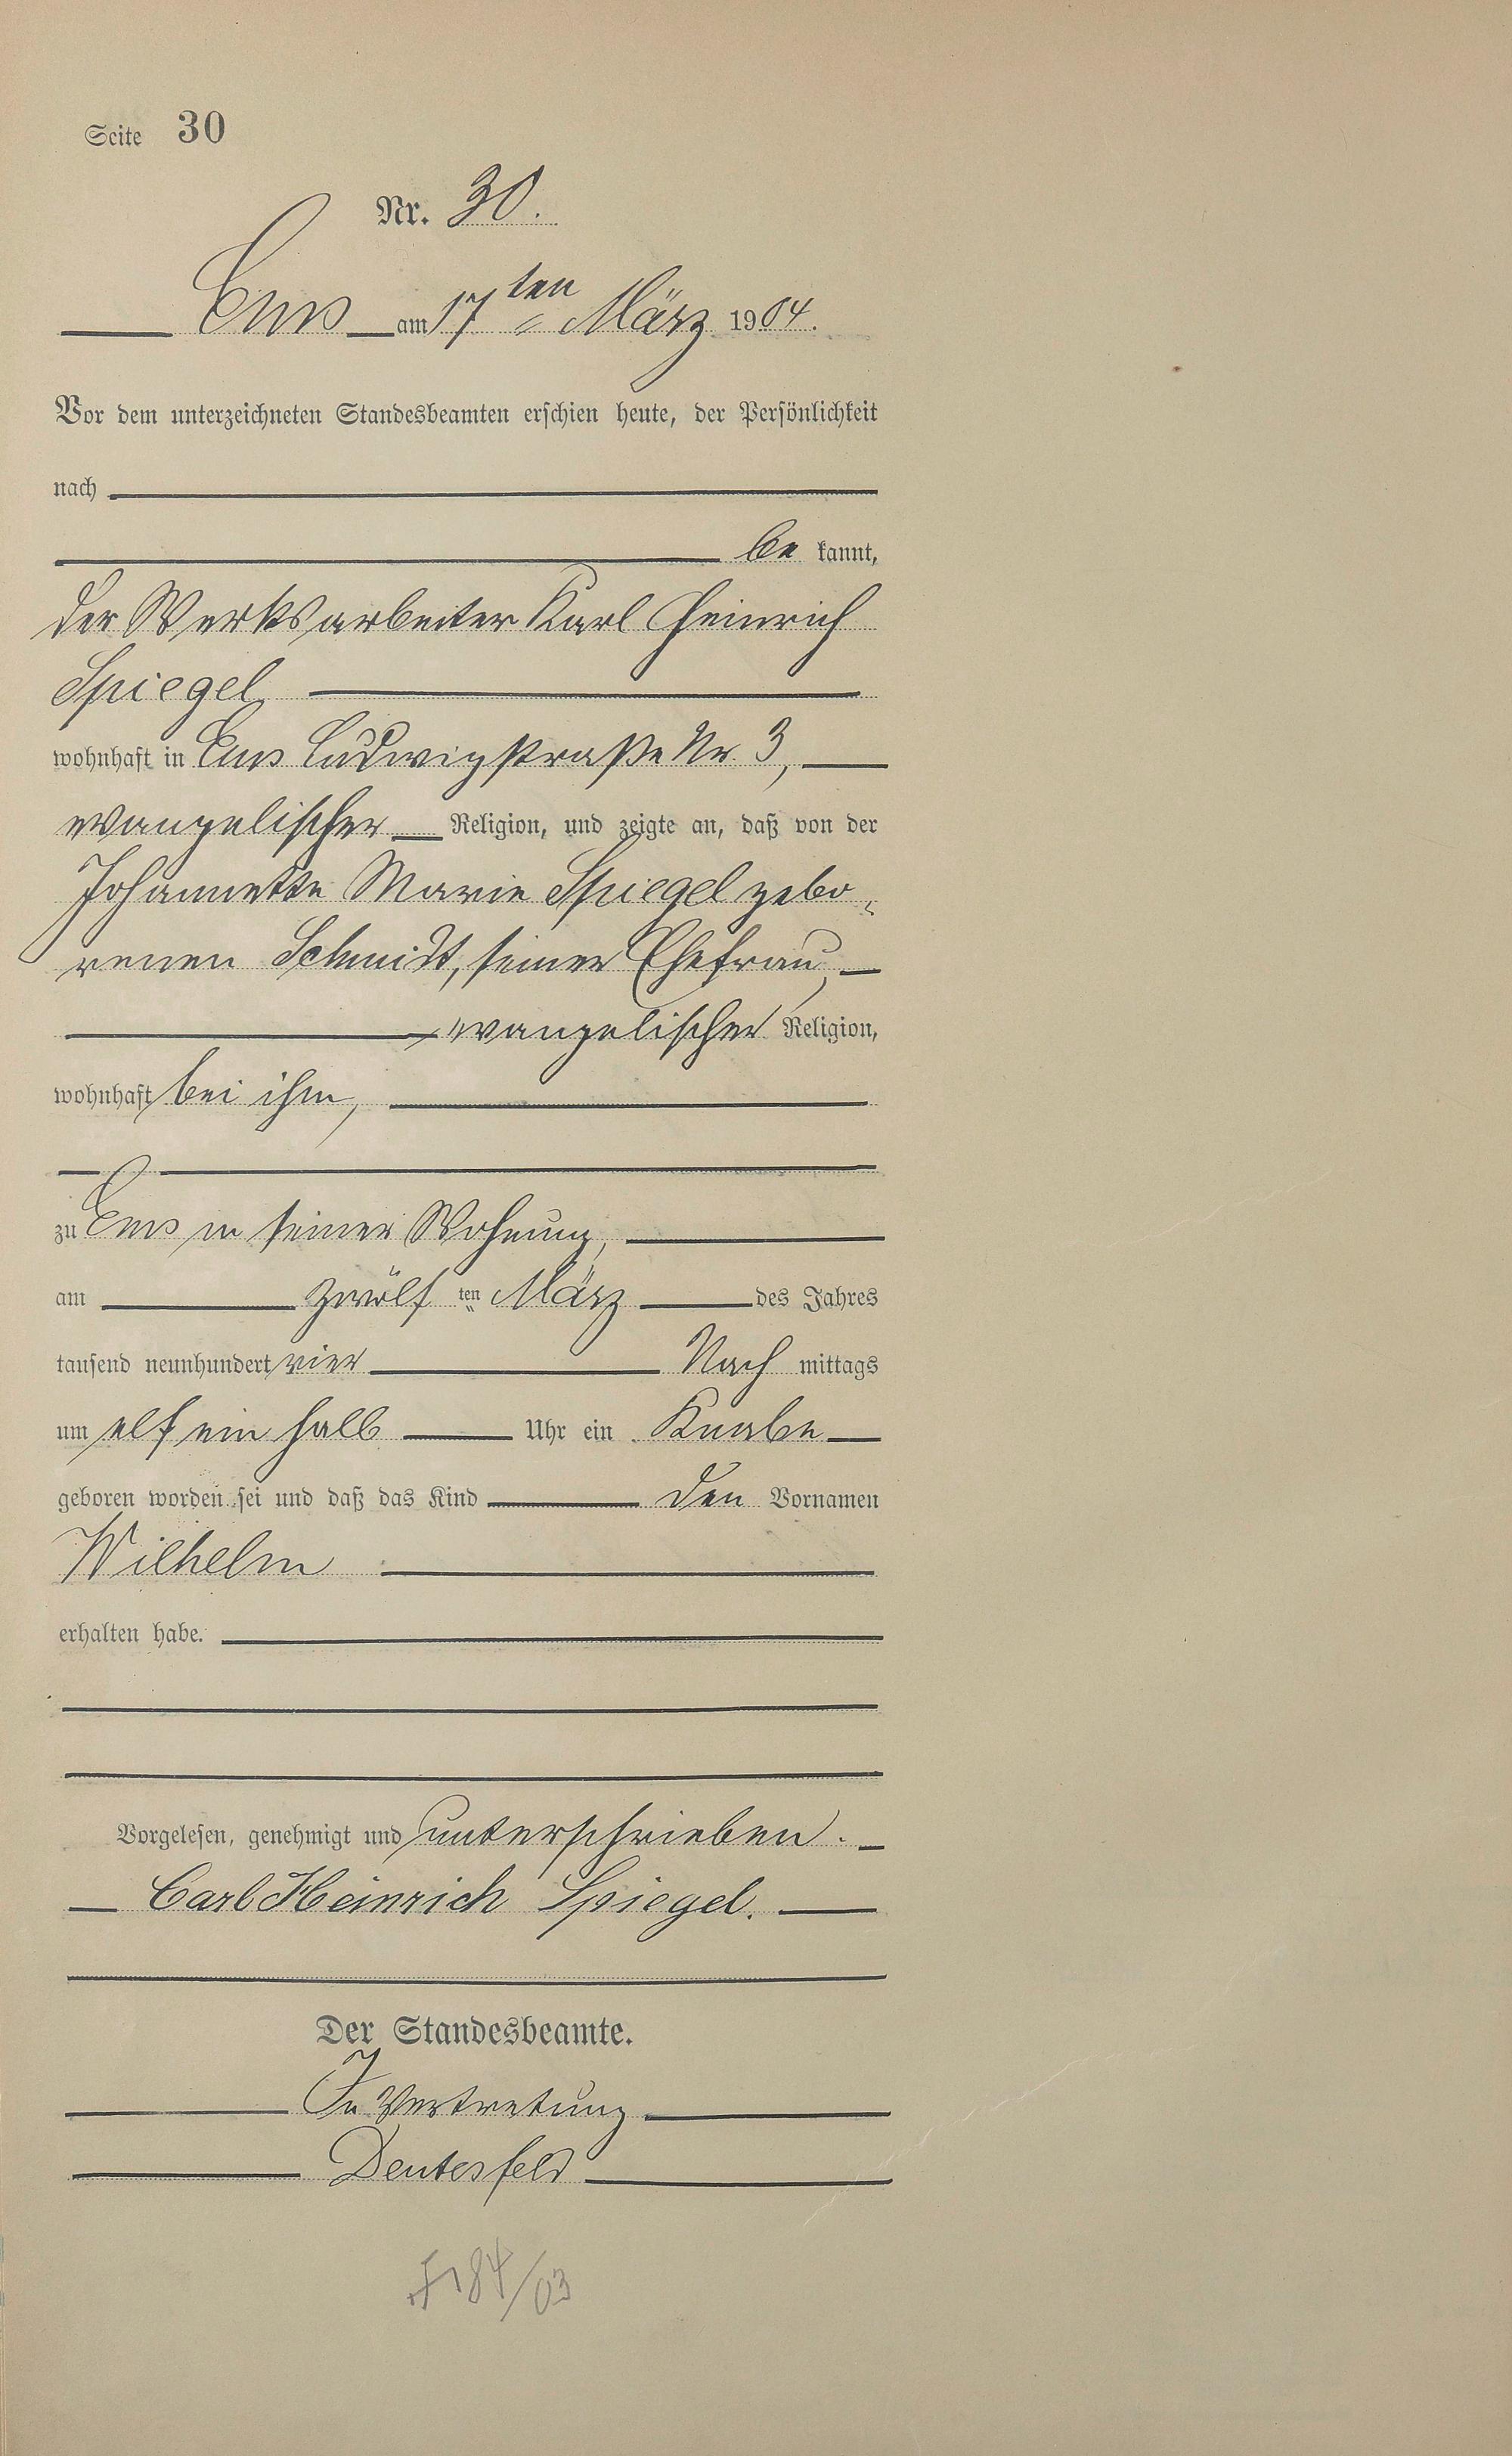 Seite 30
Nr. 30.
Ems am 17ten März 1904.
Vor dem unterzeichneten Standesbeamten erschien heute, der Persönlichkeit
nach
be kannt,
der Werksarbeiter Karl Heinrich
Spiegel,
wohnhaft in Ems Ludwigstraße Nr. 3,
evangelischer Religion, und zeigte an, daß von der
Johannette Marie Spiegel gebo-
renen Schmidt, seiner Ehefrau,
evangelischer Religion,
wohnhaft bei ihm,
zu Ems in seiner Wohnung,
am zwölf ten März des Jahres
tausend neunhundert vier Nach mittags
um elf ein halb Uhr ein Knabe
geboren worden sei und daß das Kind den Vornamen
Wilhelm
erhalten habe.
Vorgelesen, genehmigt und unterschrieben.
Carl Heinrich Spiegel.
Der Standesbeamte.
In Vertretung
Deutesfeld
184/03